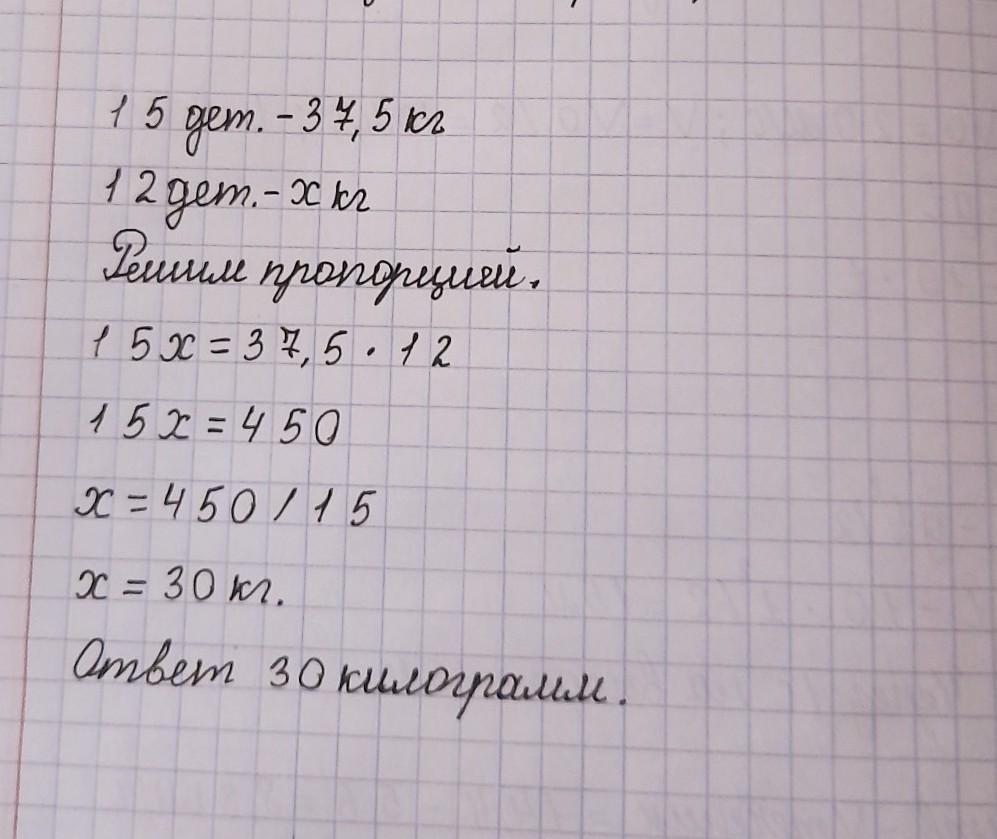 15 дет. - 37,5 кг
12 дет. - x кг
Решим пропорцией.
15x = 37,5 · 12
15x = 450
x = 450 / 15
x = 30 кг.
Ответ 30 килограмм.